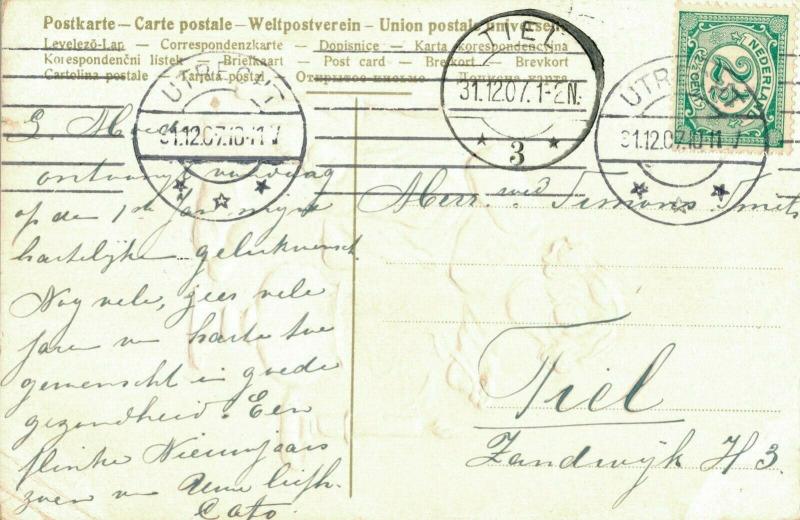 Postkarte — Carte postale — Weltpostverein — Union postale universelle
Levelező-Lap — Correspondenzkarte — Dopisnice — Karta korespondencyjna
Korespondenční lístek — Briefkaart — Post card — Brefkort — Brevkort
Cartolina postale — Tarjeta postal — Открытое письмо — Дописна карта
UTRECHT
31.12.07.10-11V
TIEL
31.12.07.1-2N.
3
UTRECHT
31.12.07.10-11
NEDERLAND
2½
CENT
ontvang vandaag
op den 1st Jan. mijne
hartelijke gelukwensch.
Nog vele, zeer vele
jaren van harte toe
gewenscht in goede
gezondheid. Een
flinke Nieuwjaars
zoen van Uwe liefh.
Cato.
Simons Smits
Tiel
Zandwijk H 3.